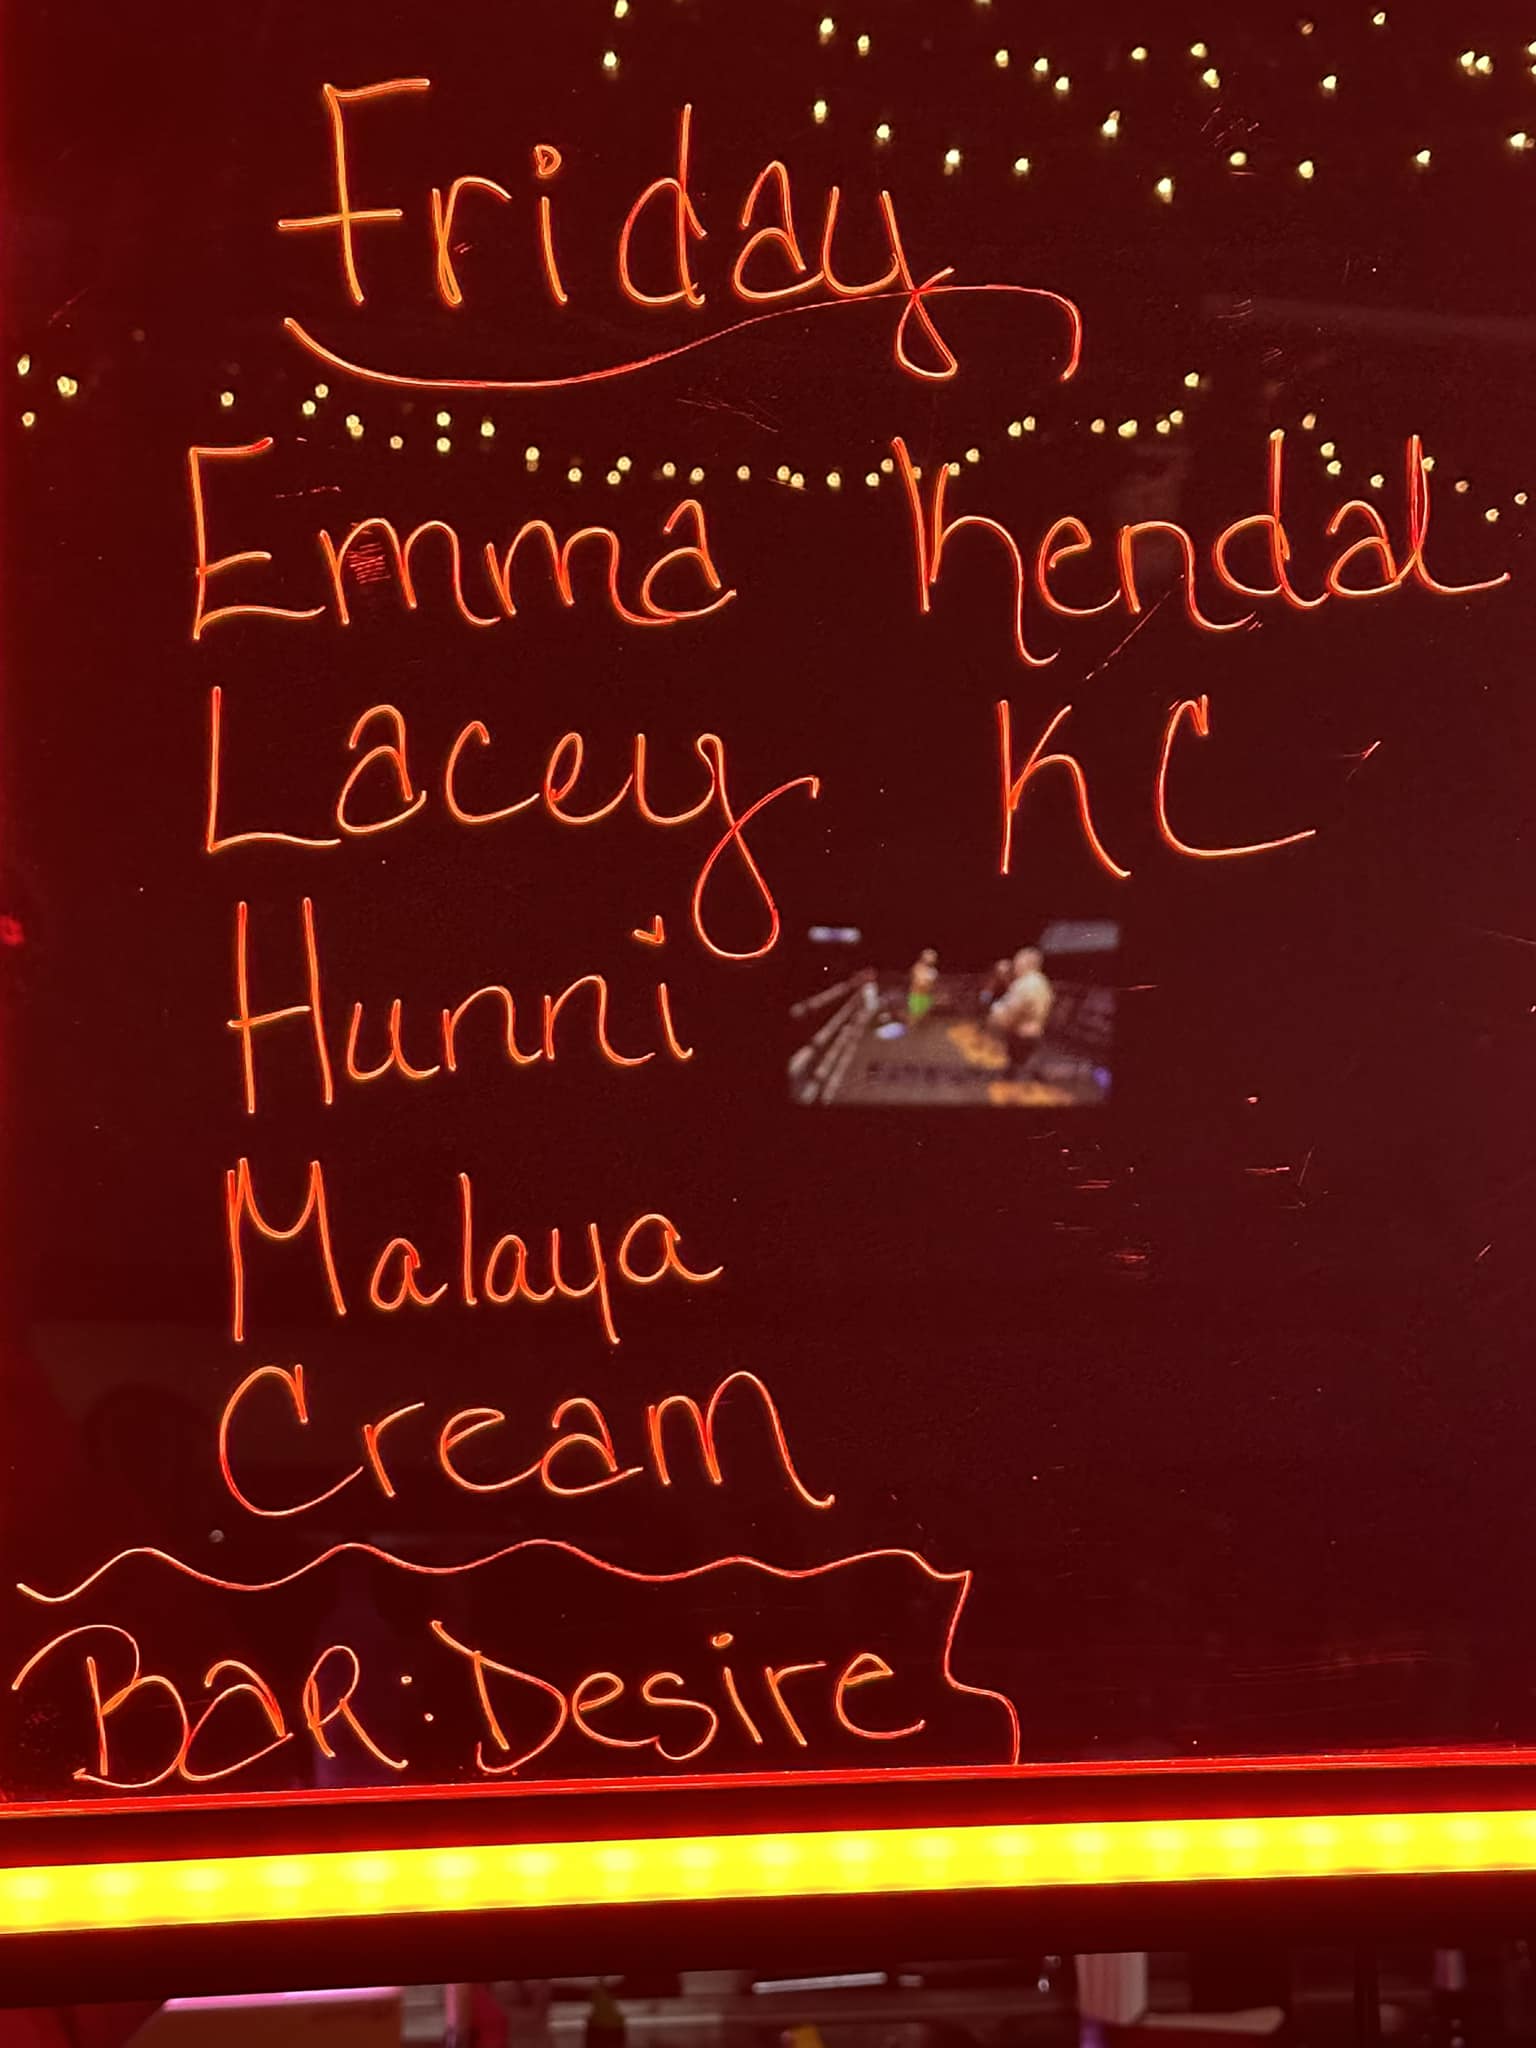 Friday
Emma Kendal
Lacey KC
Hunni
Malaya
Cream
BAR: Desire